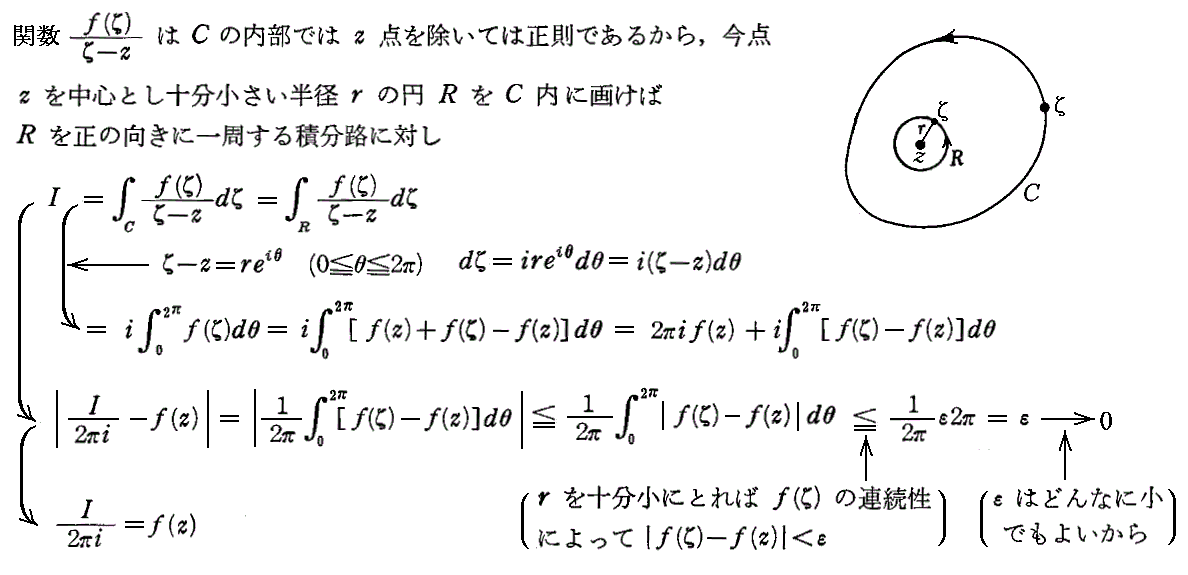 関数 f(ζ)/(ζ−z) は C の内部では z 点を除いては正則であるから，今点
z を中心とし十分小さい半径 r の円 R を C 内に画けば
R を正の向きに一周する積分路に対し
I = ∫_C f(ζ)/(ζ−z) dζ = ∫_R f(ζ)/(ζ−z) dζ
ζ−z=re^{iθ} (0≦θ≦2π) dζ=ire^{iθ}dθ=i(ζ−z)dθ
= i∫_0^{2π} f(ζ)dθ = i∫_0^{2π} [f(z)+f(ζ)−f(z)]dθ = 2πi f(z) + i∫_0^{2π} [f(ζ)−f(z)]dθ
|I/2πi − f(z)| = |1/2π ∫_0^{2π} [f(ζ)−f(z)]dθ| ≦ 1/2π ∫_0^{2π} |f(ζ)−f(z)|dθ ≦ 1/2π ε2π = ε → 0
(r を十分小にとれば f(ζ) の連続性
によって |f(ζ)−f(z)|<ε)
(ε はどんなに小
でもよいから)
I/2πi = f(z)
ζ
ζ
r
z
R
C